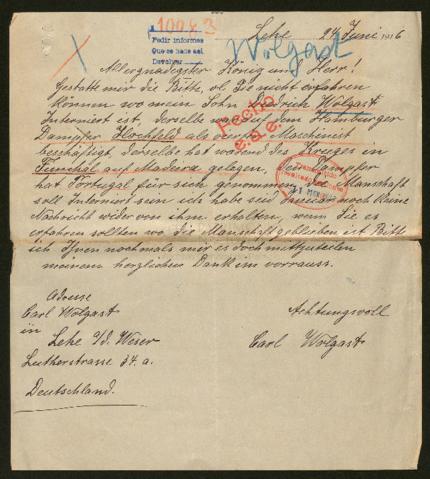 10983
Pedir informes
Que se hace así
Devolver
Lehe 24 Juni 1916
Wolgast
Allergnädigster König und Herr!
Gestatte mir die Bitte, ob Sie nicht erfahren
können wo mein Sohn Diedrich Wolgast
Interniert ist, derselbe war auf dem Hamburger
Dampfer Hochfeld als Maschinist
beschäftigt, derselbe hat wärend des Krieges in
Funchal auf Madeira gelegen. Der Dampfer
hat Portugal für sich genommen, Die Manschaft
soll Interniert sein ich habe seit noch keine
Nachricht wider von ihm erhalten, wenn Sie es
erfahren sollten wo die Manschaft geblieben ist Bitte
ich Ihnen nochmals mir es doch mitzuteilen
meinen herzlichen Dank im vorraus.
Fecho
Adresse
Carl Wolgast
in
Lehe a/d. Weser
Lutherstrasse 34. a.
Deutschland.
Achtungsvoll
Carl Wolgast